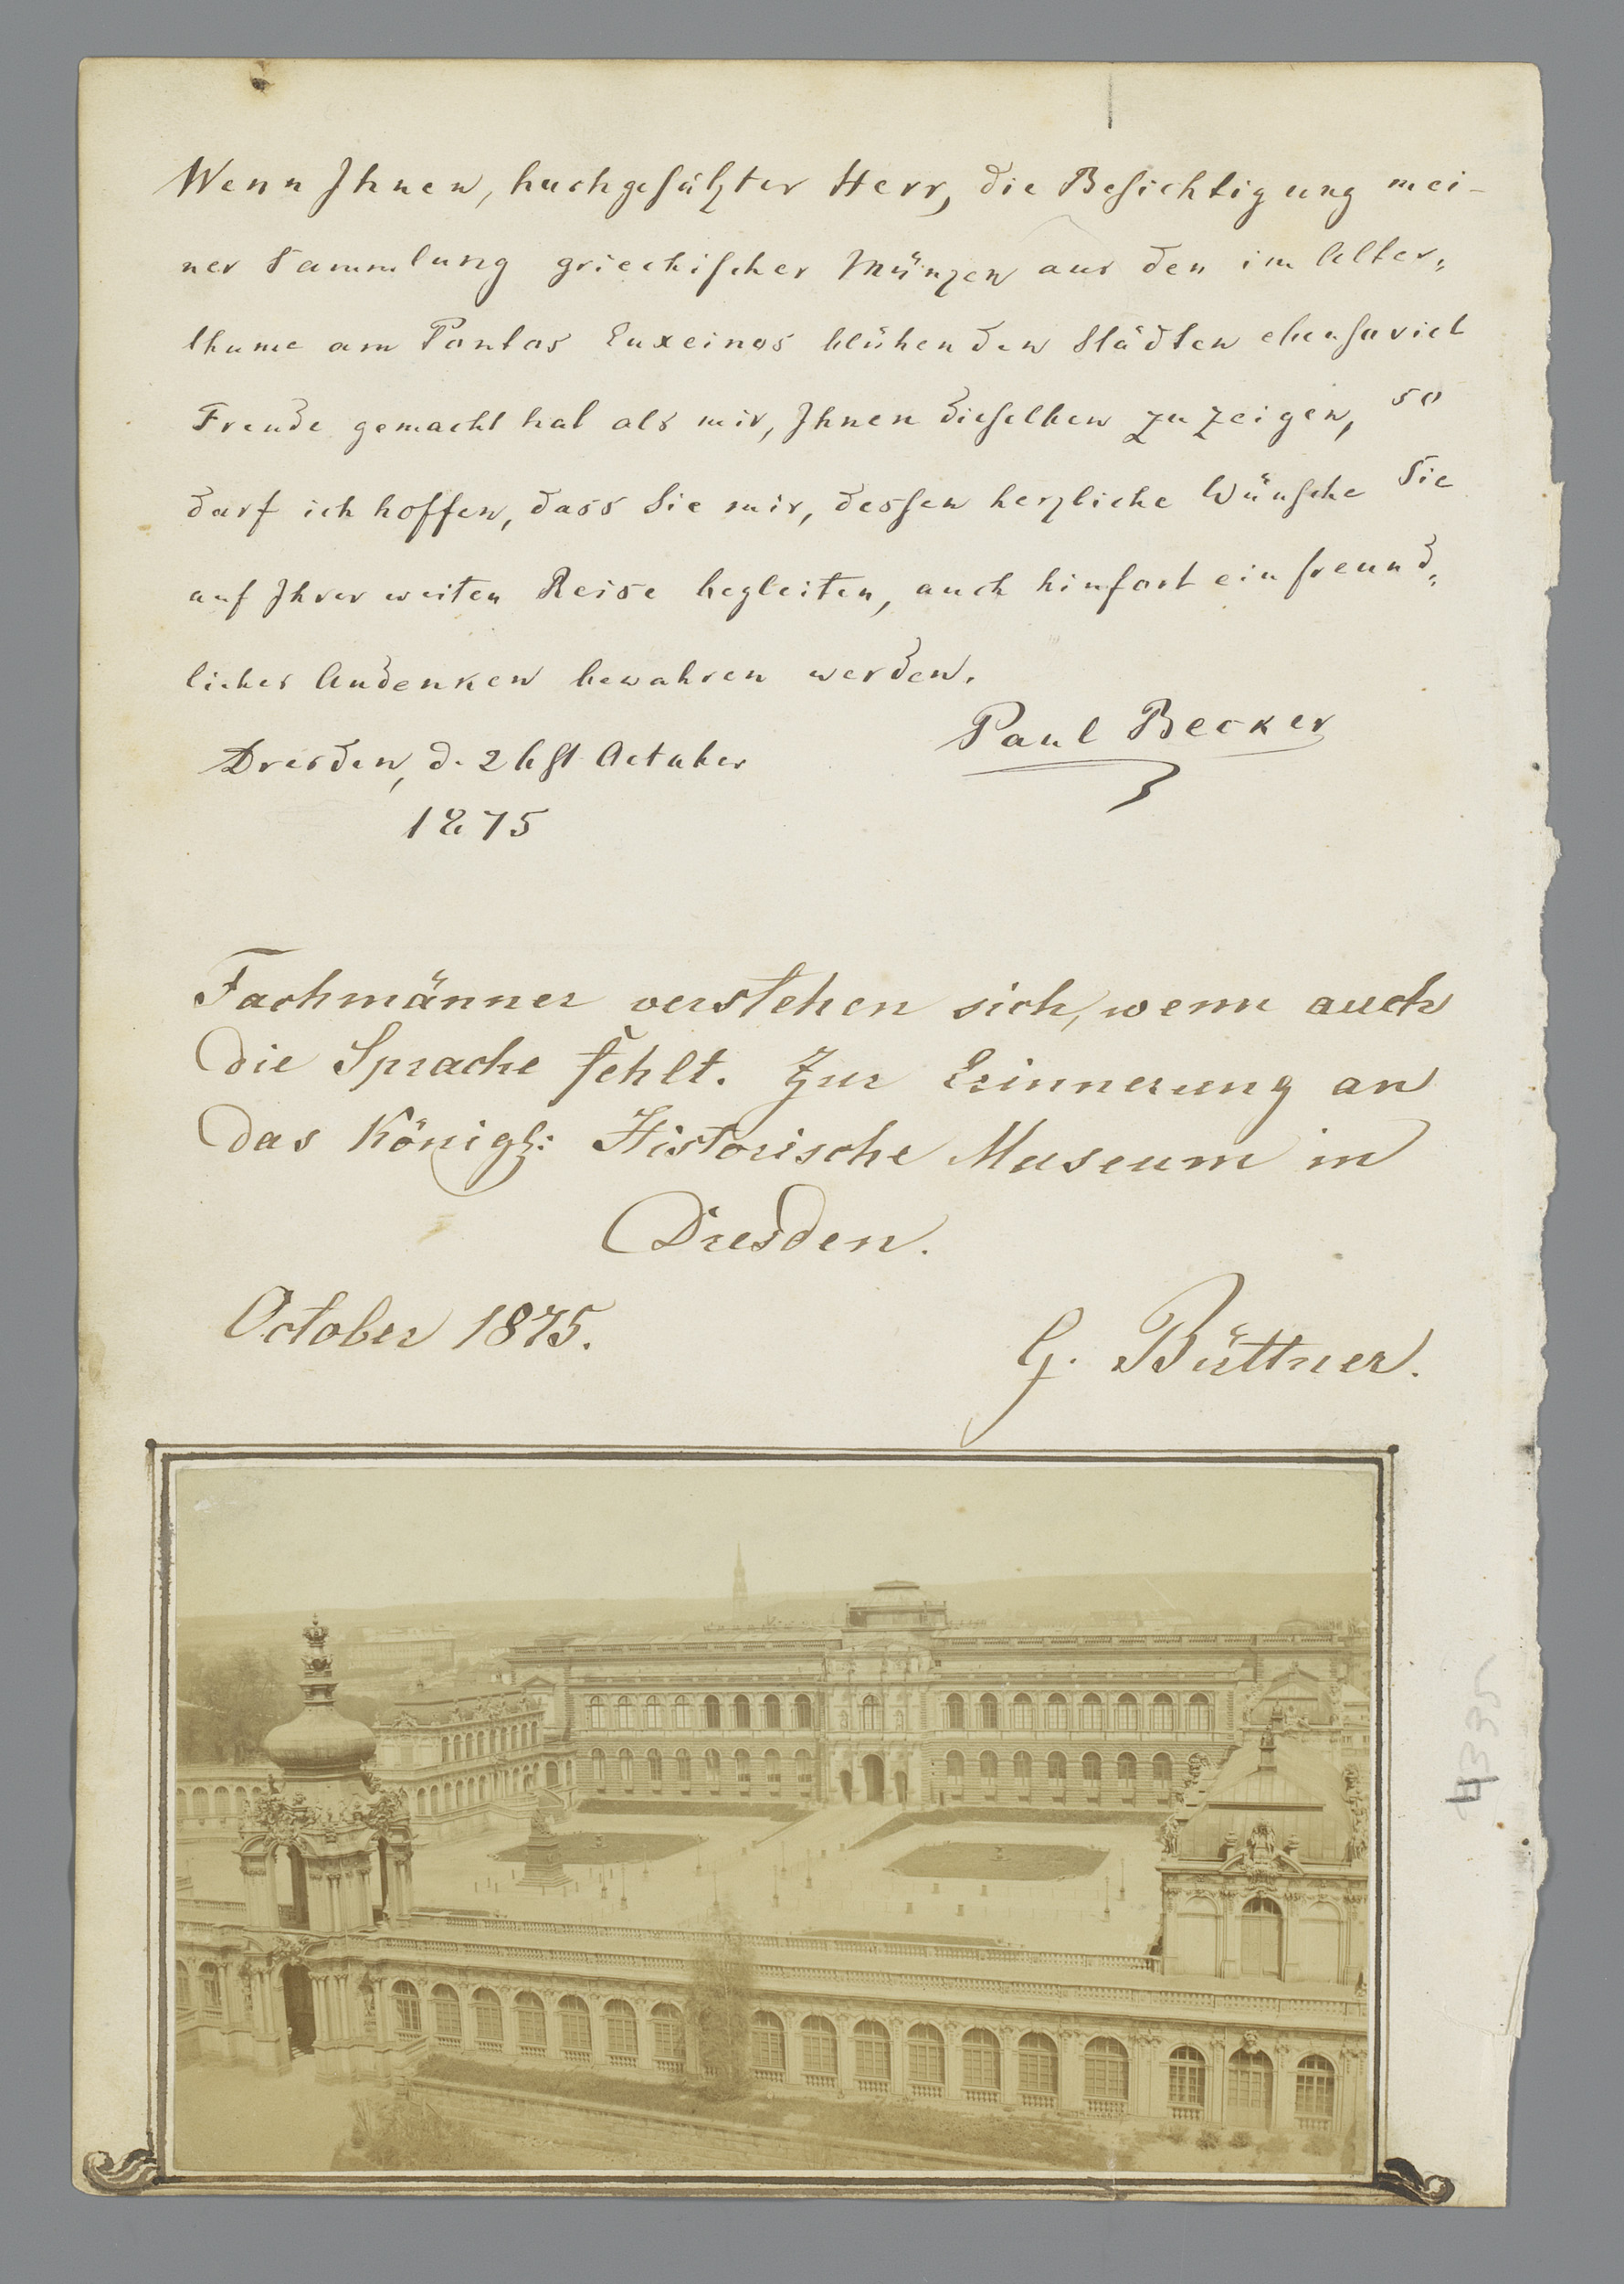 Wenn Ihnen, hochgeschätzter Herr, die Besichtigung mei-
ner Sammlung griechischer Münzen aus den im Alter=
thume am Pontos Euxeinos blühenden Städten ebensoviel
Freude gemacht hat als mir, Ihnen dieselben zu zeigen, so
darf ich hoffen, dass Sie mir, dessen herzliche Wünsche Sie
auf Ihrer weiten Reise begleiten, auch hinfort ein freund=
liches Andenken bewahren werden.
Paul Becker
Dresden, d. 26st October
1875
Fachmänner verstehen sich, wenn auch
die Sprache fehlt. Zur Erinnerung an
das Königl: Historische Museum in
Dresden.
October 1875.
G. Büttner.
4335